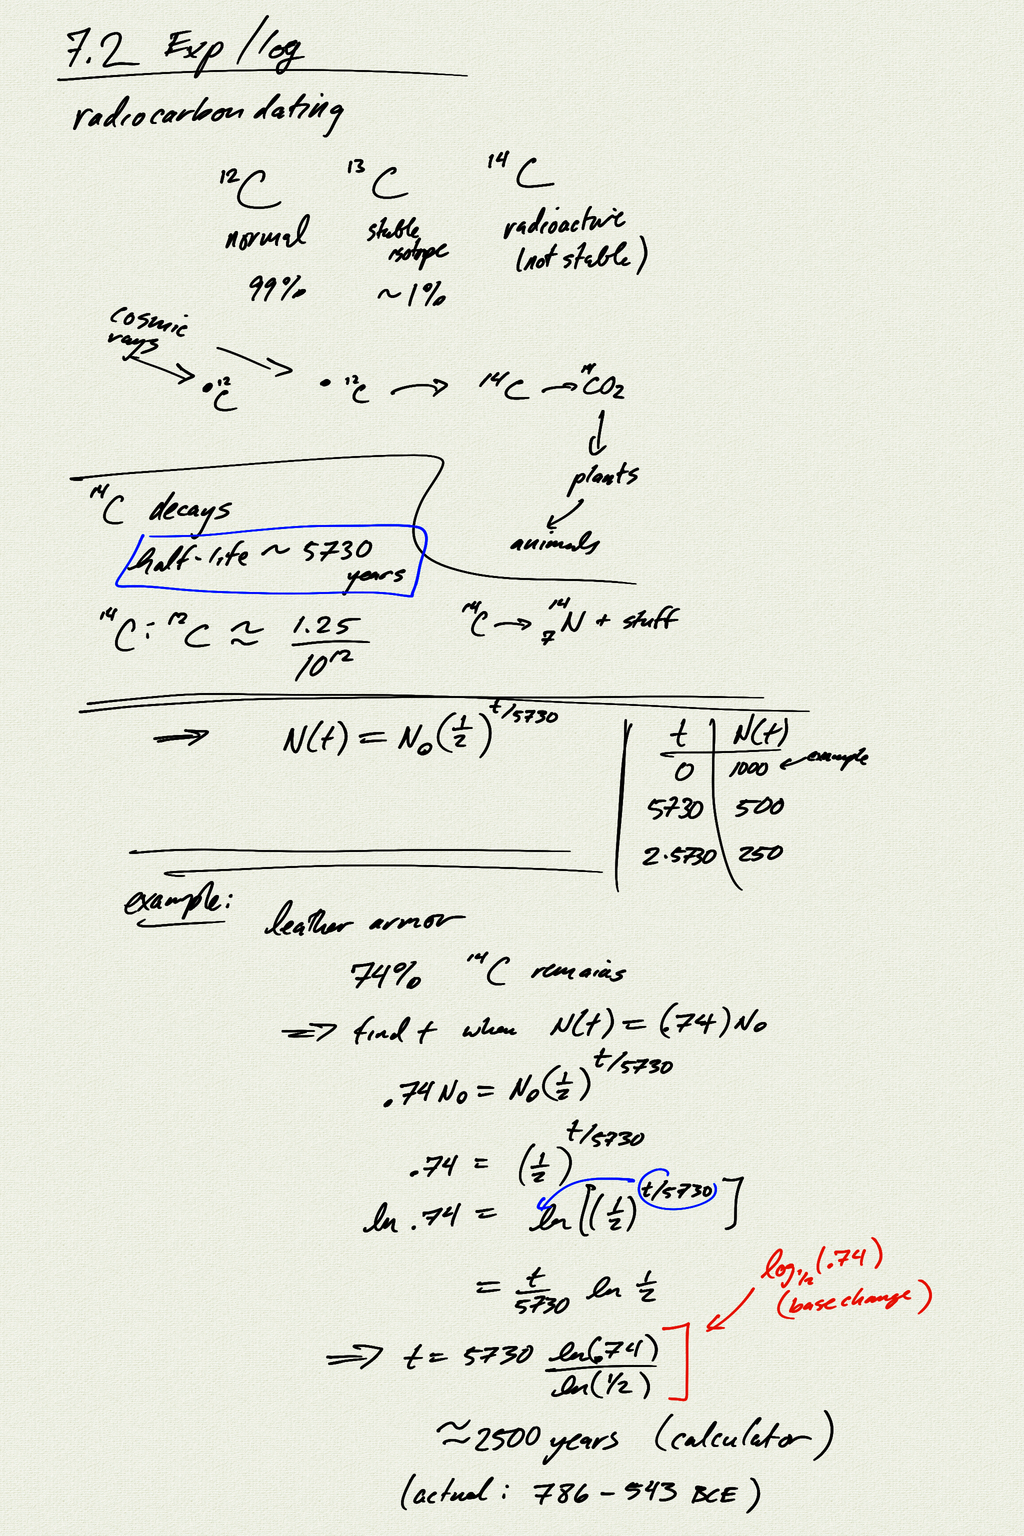 7.2 Exp/log
radiocarbon dating
¹²C ¹³C ¹⁴C
normal stable isotope radioactive (not stable)
99% ~1%
cosmic rays
•¹²C • ¹²C → ¹⁴C → ¹⁴CO₂
plants
animals
¹⁴C decays
half-life ~ 5730 years
¹⁴C : ¹²C ≈ 1.25/10¹² ¹⁴C → ¹⁴₇N + stuff
⇒ N(t) = N₀(1/2)^(t/5730)
t N(t)
0 1000 ← example
5730 500
2·5730 250
example:
leather armor
74% ¹⁴C remains
⇒ find t when N(t) = (.74)N₀
.74N₀ = N₀(1/2)^(t/5730)
.74 = (1/2)^(t/5730)
ln .74 = ln[(1/2)^(t/5730)]
= t/5730 ln 1/2
log_1/2(.74)
(base change)
⇒ t = 5730 ln(.74)/ln(1/2)
≈ 2500 years (calculator)
(actual: 786 – 543 BCE)